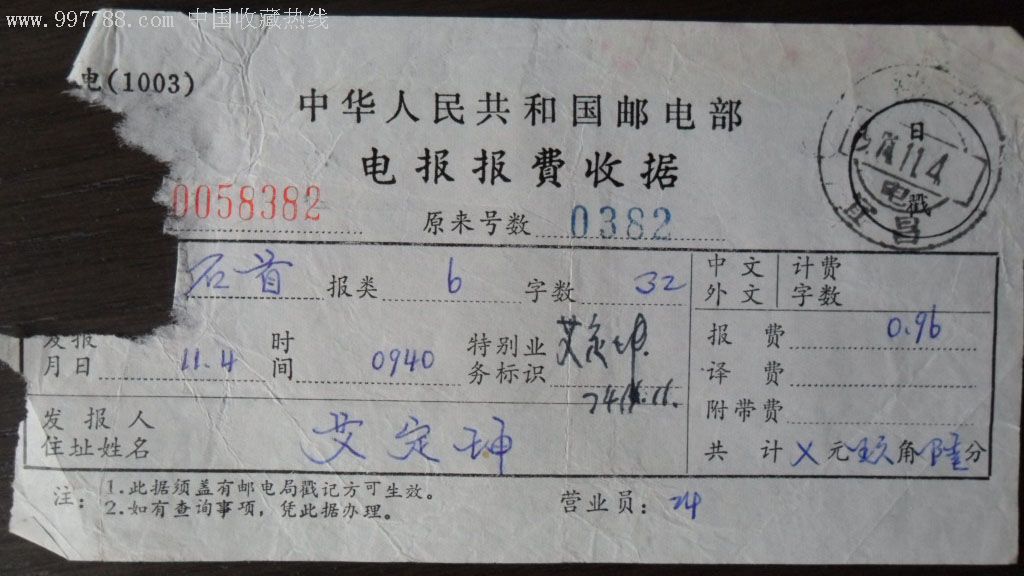 www.997788.com 中国收藏热线
电(1003)
中华人民共和国邮电部
电报报費收据
0058382 原来号数 0382
日
74.11.4
电
戳
石首 报类 6 字数 32
中文 计费
外文 字数
发报 月日 11.4 时间 0940 特别业务标识 艾定坤
74.11.11.
报费 0.96
译费
附带费
发报人
住址姓名 艾定坤
共计 X 元 玖 角 陆 分
注: 1.此据须盖有邮电局戳记方可生效。
2.如有查询事项,凭此据办理。
营业员: 24